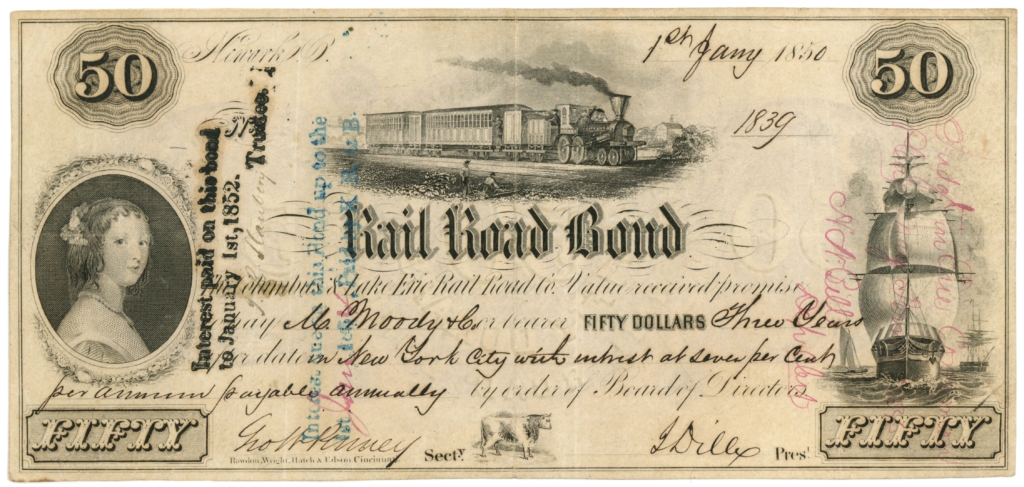 50
Newark O.
1st Jany 1850
50
No
1839
Rail Road Bond
The Columbus & Lake Erie Rail Road Co. Value received promise
to pay M. Moody & Co or bearer FIFTY DOLLARS Three Years
after date in New York City with intrest at seven per Cent
per annum payable annually by order of Board of Directors
FIFTY
FIFTY
Secty.
J Dille Prest
Rawdon, Wright, Hatch & Edson, Cincinnati.
Interest paid on this bond
to January 1st, 1852.
Trustee.
Interest due this Bond up to the